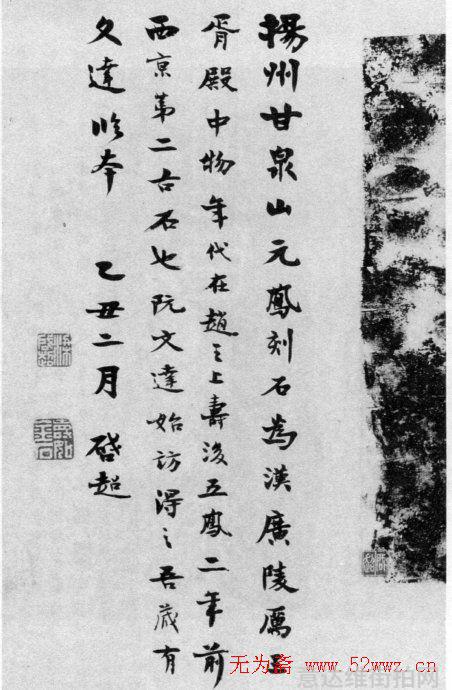 揚州甘泉山元鳳刻石為漢廣陵厲王
胥殿中物年代在趙之上壽後五鳳二年前
西京第二古石也阮文達始訪得之吾藏有
文達 本 乙丑二月 啓超
无为斋 www.52wwz.cn
意达维街拍网